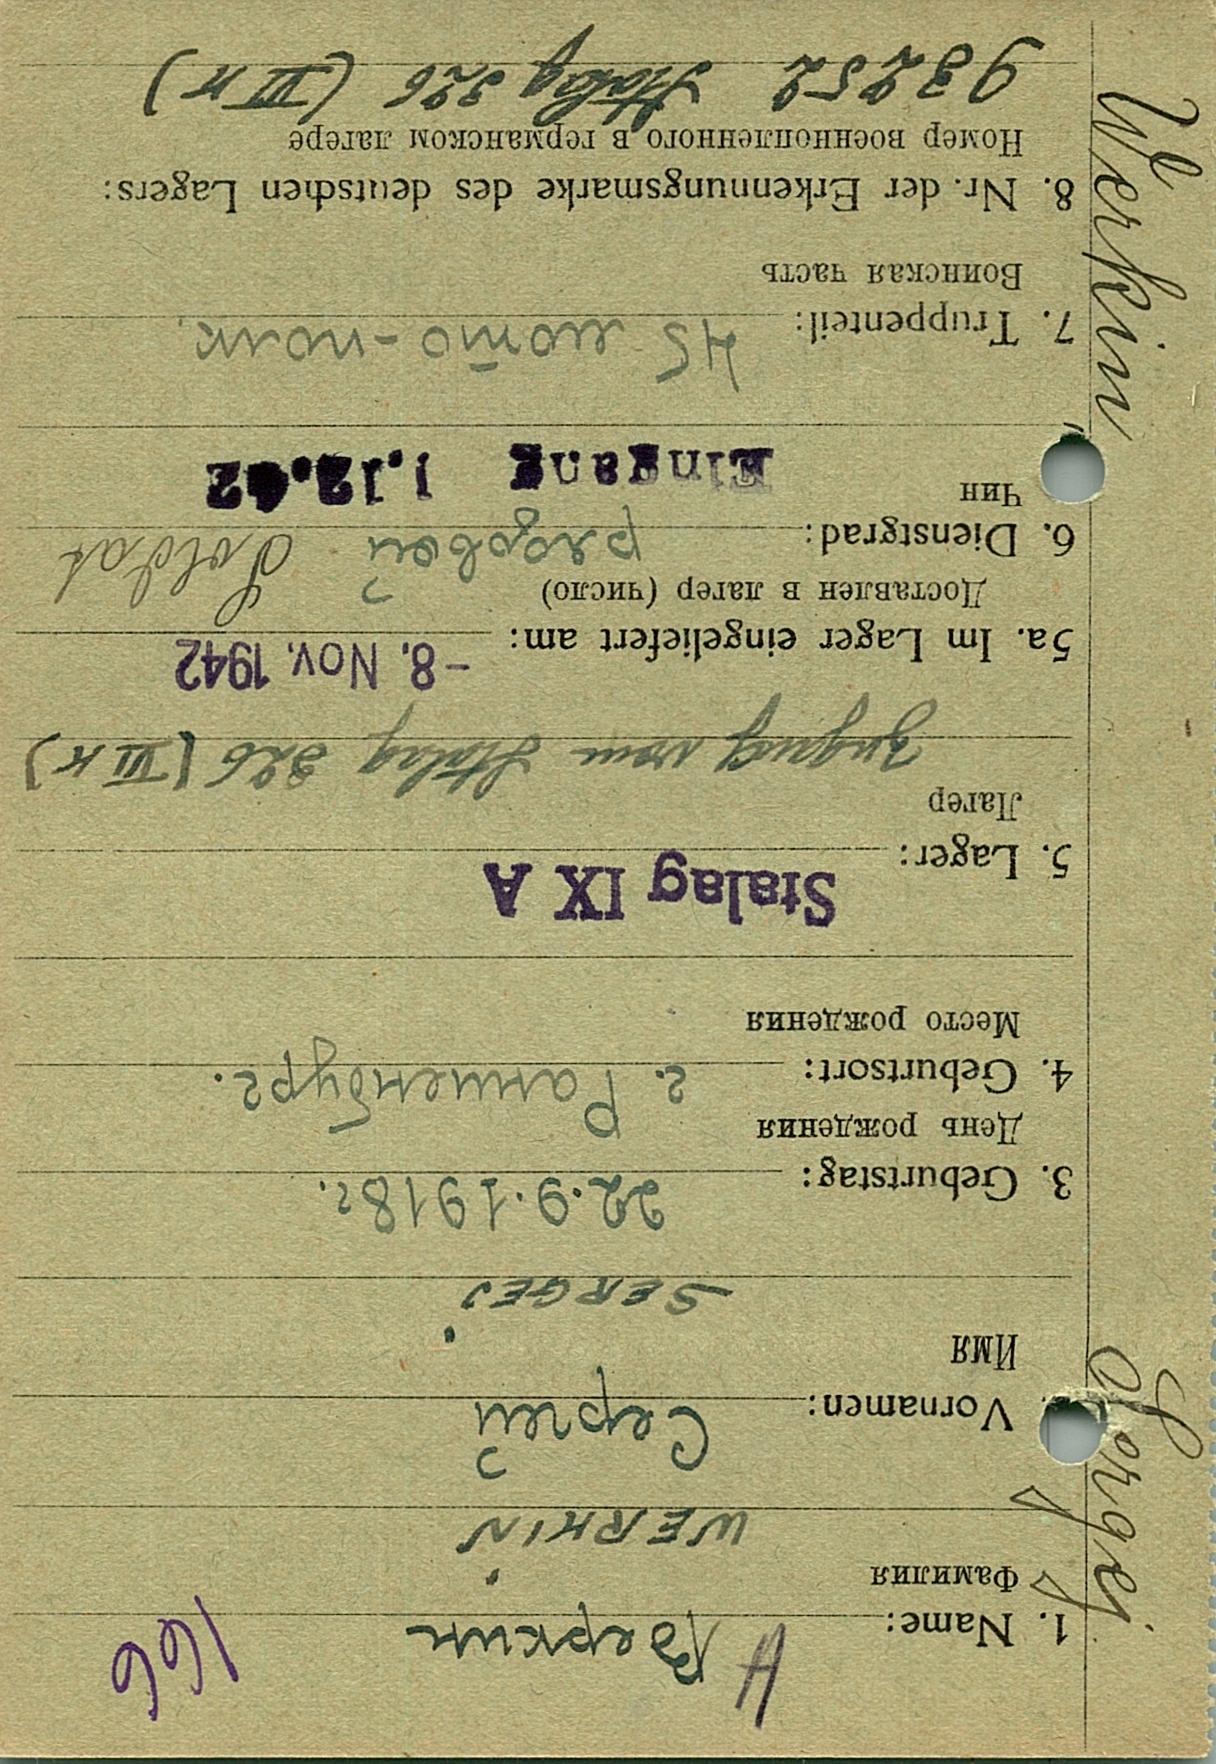 166
A Веркин
1. Name:
Фамилия
WERKIN
Сергей
Vornamen:
Имя
SERGEJ
22.9.1918г.
3. Geburtstag:
День рождения
г. Раненбург.
4. Geburtsort:
Место рождения
Stalag IX A
5. Lager:
Лагер
Zugang vom Stalag 326 (VI K)
-8. Nov. 1942
5a. Im Lager eingeliefert am:
Доставлен в лагер (число)
рядовой Soldat
6. Dienstgrad:
Чин
Eingang 1.12.42
45 мото-полк.
7. Truppenteil:
Воинская часть
8. Nr. der Erkennungsmarke des deutschen Lagers:
Номер военнопленного в германском лагере
93252 Stalag 326 (VI K)
Werkin
Sergej